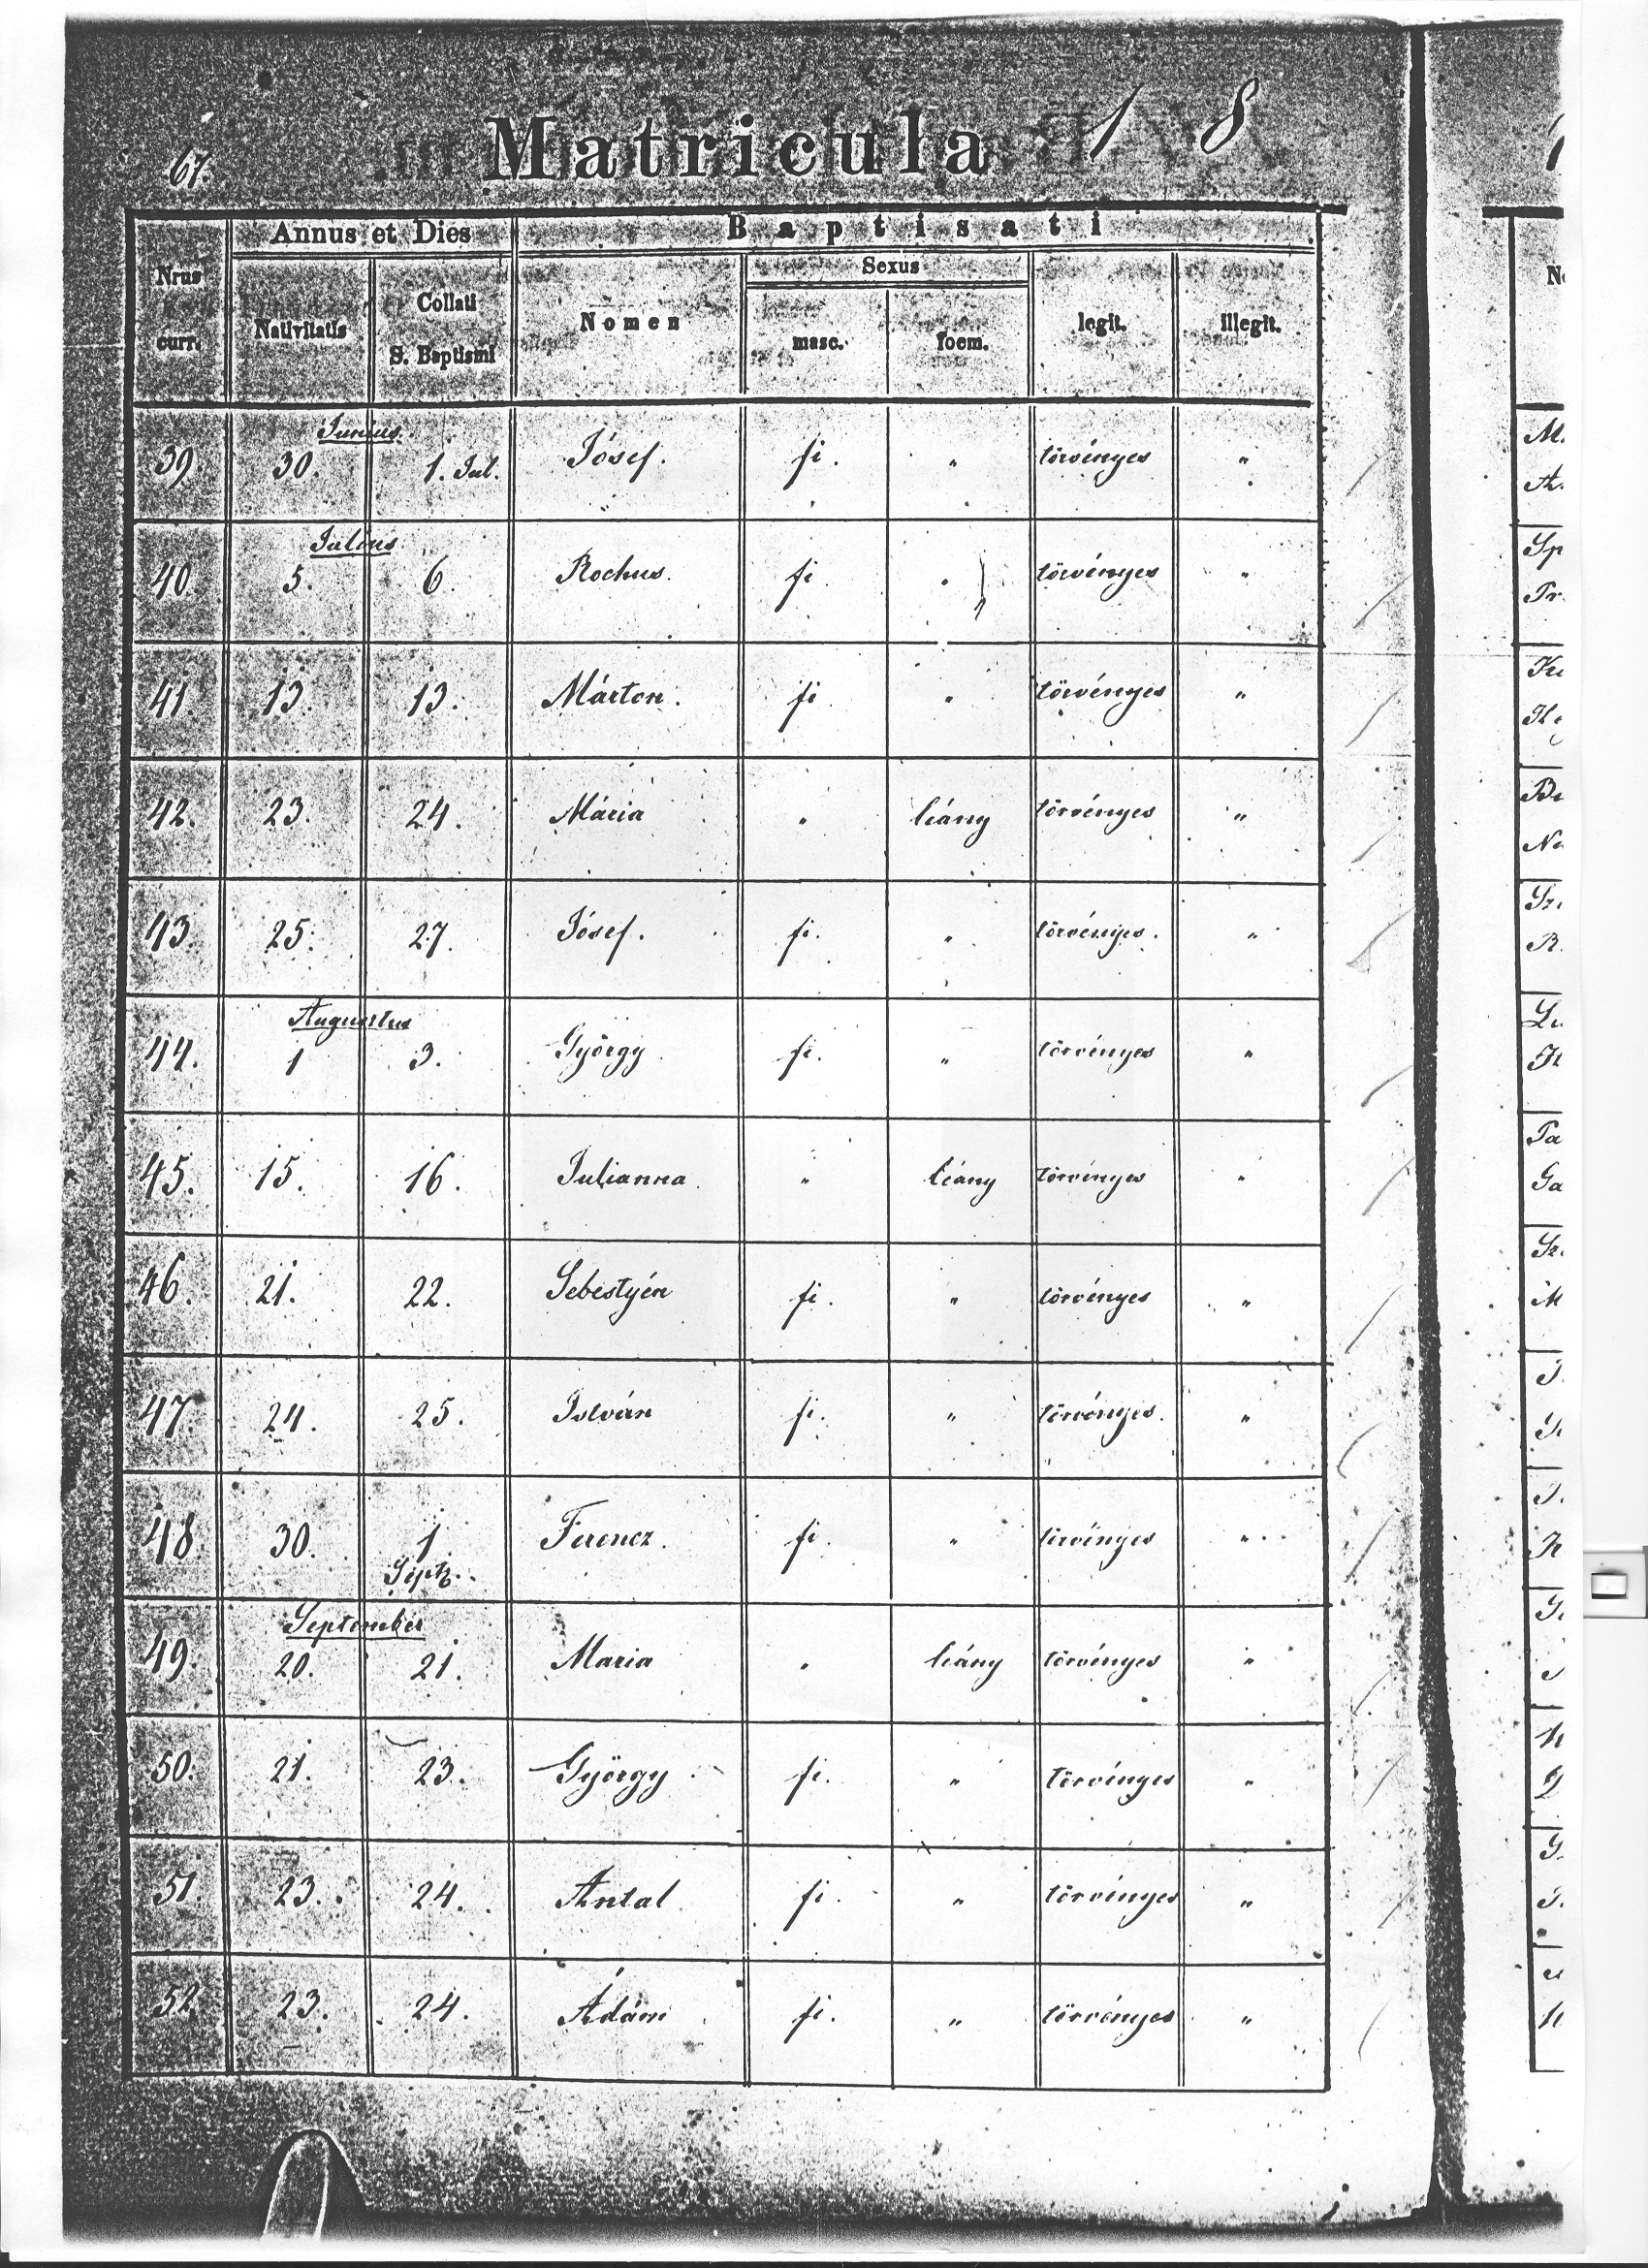 67. Matricula 1 8
Annus et Dies Baptisati
Nrus curr. Nativitatis Collati S. Baptismi Nomen Sexus masc. foem. legit. illegit.
Junius.
39 30. 1. Jul. Jósef. fi. " törvényes "
Julius
40 5. 6. Rochus. fi. " törvényes "
41 13. 13. Márton. fi " törvényes "
42. 23. 24. Mária " leány törvényes "
43. 25. 27. Jósef. fi. " törvényes. "
Augustus
44. 1 3. György fi. " törvényes "
45. 15. 16. Julianna. " leány törvényes "
46. 21. 22. Sebestyén fi. " törvényes "
47. 24. 25. István fi. " törvényes. "
48. 30. 1 Septb. Ferencz. fi. " törvényes "
September
49. 20. 21. Maria " leány törvényes "
50. 21. 23. György fi. " törvényes "
51. 23. 24. Antal. fi. " törvényes "
52 23. 24. Ádám fi. " törvényes "